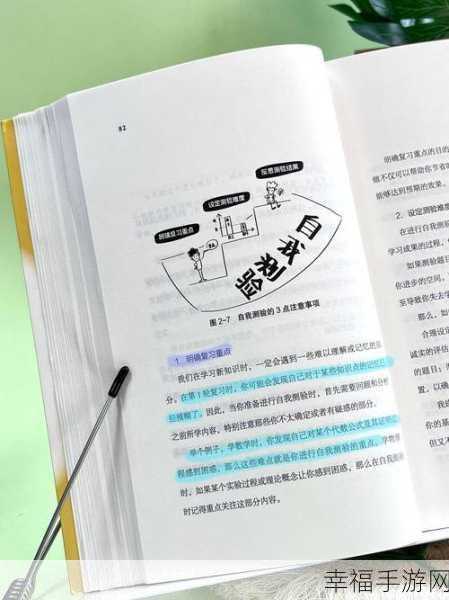 82
反思测验结果
设定测验难度
明确复习重点
自我测验
图 2-7 自我测验的 3 点注意事项
1. 明确复习重点
我们在学习新知识时，一定会遇到一些难以理解或记忆的部
分。在第 1 轮复习时，你可能会发现自己对于某些知识点的记忆已
经模糊了。因此，当你准备进行自我测验时，首先需要回顾和分析
之前所学内容，特别注意那些你不太确定或者有疑惑的部分。
举个例子，学数学时，你发现自己对某个代数公式及其证明过
程感到困惑，那么这些难点就是你进行自我测验的重点。学物理
时，如果某个实验过程或理论概念让你感到困惑，那么在自我测验
时记得重点关注这部分内容。
明确复习重点的目的
能够达到预期的效果。
2. 设定测验难度
在进行自我测
学习成果的过程，
如果测验题
你进步的空间，
至导致你失去学
那么，如
合理设
诚实的评估
的题目；
置，以确
我们
但又不
幸福手游网